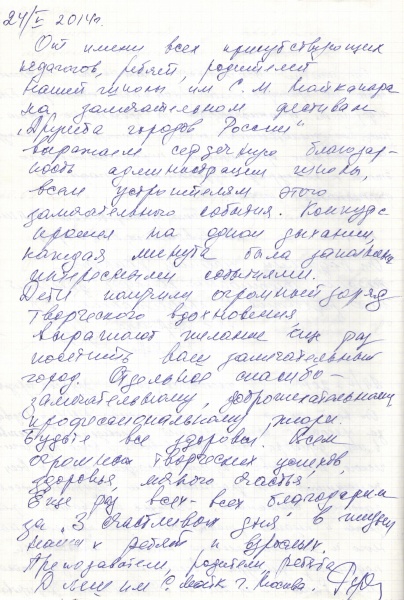 24/V 2014г.
От имени всех присутствующих
педагогов, ребят, родителей
нашей школы им С. М. Майкапара
на замечательном фестивале
"Дружба городов России"
выражаем сердечную благодар-
ность администрации школы,
всем устроителям этого
замечательного события. Конкурс
прошел на одном дыхании,
каждая минута была заполнена
интересными событиями.
Дети получили огромный заряд
творческого вдохновения
выражают желание еще раз
посетить ваш замечательный
город. Отдельное спасибо –
замечательному, доброжелательному
профессиональному жюри.
Будьте все здоровы. Всем
огромных творческих успехов,
здоровья, много счастья.
Еще раз всех-всех благодарим
за "3 счастливых дня" в жизни
наших ребят и взрослых.
Преподаватели, родители, ребята
ДМШ им С. Майк г. Москва.